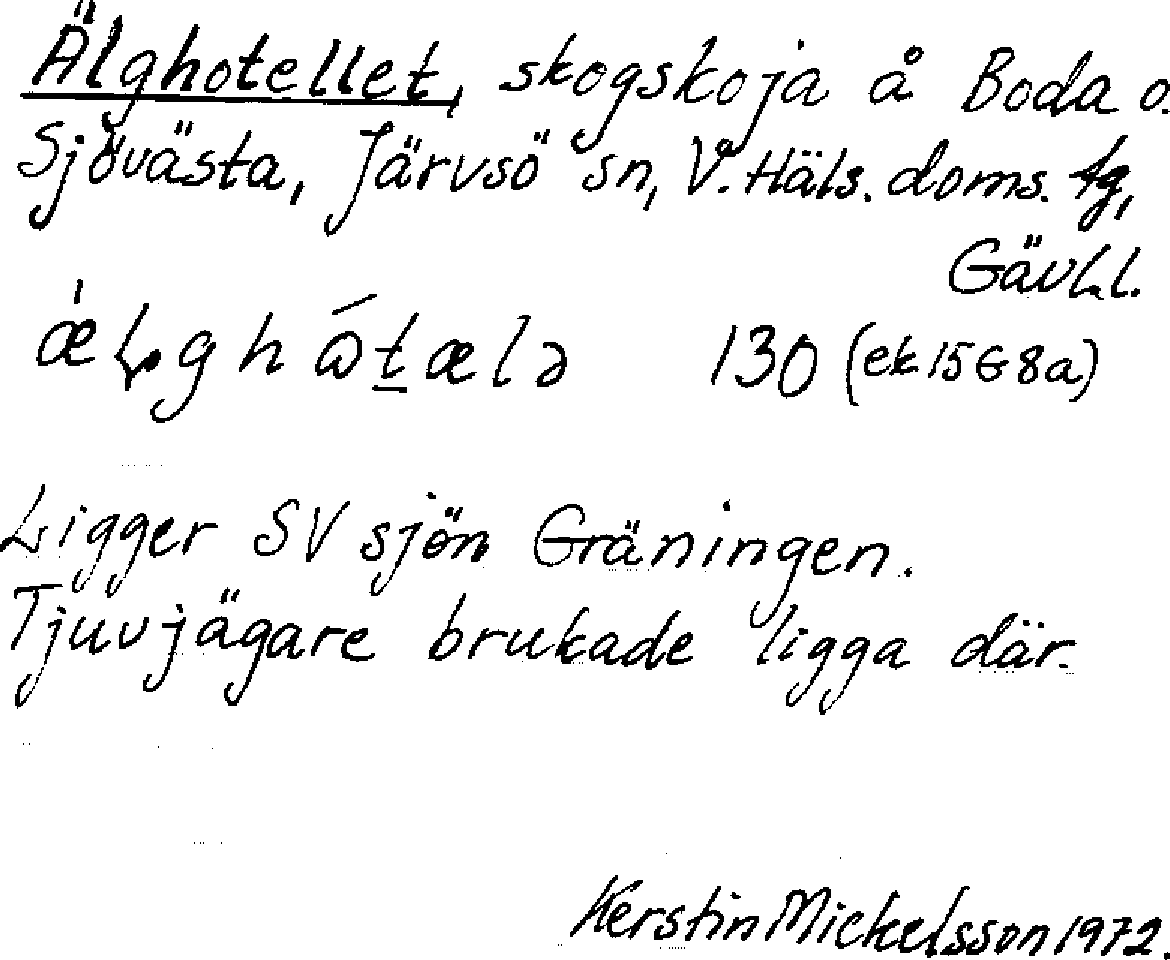 Älghotellet, skogskoja å Boda o.
Sjövästa, Järvsö sn, V. Häls. doms. tg,
Gävl.l.
130 (ek 15 G 8a)
Ligger SV sjön Gräningen.
Tjuvjägare brukade ligga där.
Kerstin Mickelsson 1972.